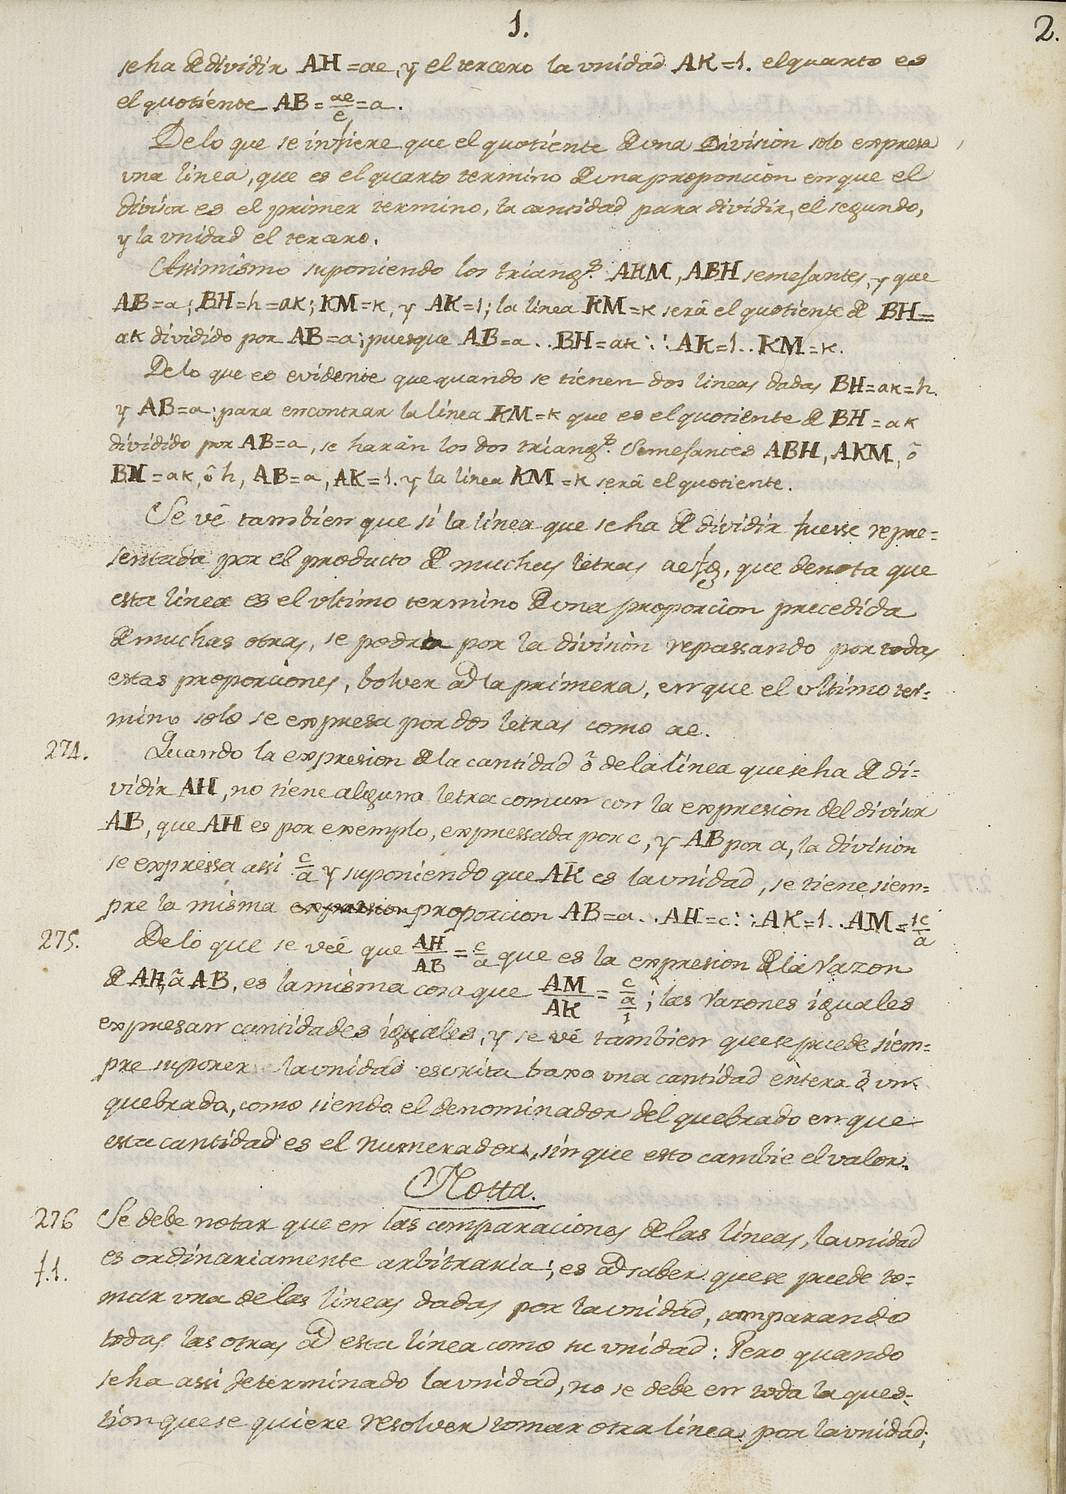 1.
2.
se ha de dividir AH=ae, y el tercero la vnidad AK=1. el quarto es
el quotiente AB=ae/e=a.
De lo que se infiere que el quotiente de una Division solo expresa
vna linea, que es el quarto termino de una proporcion en que el
divisor es el primer termino, la cantidad para dividir, el segundo,
y la vnidad el tercero.
Asimismo suponiendo los triangs. AKM, ABH semejantes, y que
AB=a; BH=h=aK; KM=K, y AK=1; la linea KM=K será el quotiente de BH=
aK dividido por AB=a; puesque AB=a..BH=aK::AK=1..KM=K.
De lo que es evidente que quando se tienen dos lineas dadas BH=aK=h.
y AB=a; para encontrar la linea KM=K que es el quotiente de BH=aK
dividido por AB=a, se harán los dos triangs. Semejantes ABH, AKM, ô
BH=aK, ô h, AB=a, AK=1. y la linea KM=K será el quotiente.
Se vé tambien que si la linea que se ha de dividir fuesse repre=
sentada por el producto de muchas letras aefg, que denota que
esta linea es el vltimo termino de una proporcion precedida
de muchas otras, se podrá por la division repassando por todas
estas proporciones, bolver ad la primera, en que el vltimo ter=
mino solo se expresa por dos letras como ae.
274. Quando la expresion de la cantidad ô de la linea que se ha de di=
vidir AH, no tiene alguna letra comun con la expresion del divisor
AB, que AH es por exemplo, expressada por c, y AB por a, la division
se expressa assi c/a y suponiendo que AK es la vnidad, se tiene siem=
pre la misma expresion proporcion AB=a..AH=c::AK=1..AM=1c/a
275. De lo que se veé que AH/AB=c/a que es la expresion de la Razon
de AH, â AB, es la misma cosa que AM/AK=c/a/1; las Razones iguales
expresan cantidades iguales, y se vé tambien que se puede siem=
pre suponer la vnidad escrita baxo vna cantidad entera ô vn
quebrado, como siendo el denominador del quebrado en que
esta cantidad es el Numerador, sin que esto cambie el valor.
Notta.
276 Se debe notar que en las comparaciones de las lineas, la vnidad
f.1. es ordinariamente arbitraria; es ad saber que se puede to=
mar vna de las lineas dadas por la vnidad, comparando
todas las otras ad esta linea como su vnidad: Pero quando
se ha assi determinado la vnidad, no se debe en toda la ques=
tion que se quiere resolver tomar otra linea por la vnidad;